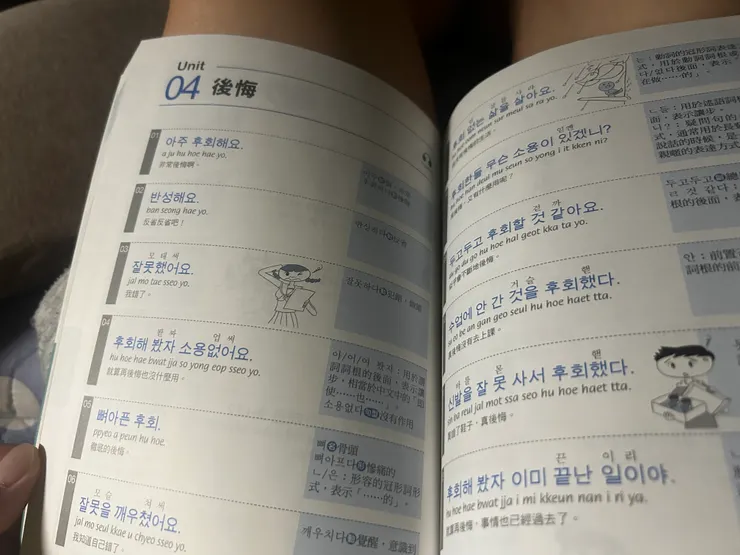 Unit
04 後悔
01
아주 후회해요.
a ju hu hoe hae yo.
非常後悔啊。
02
반성해요.
ban seong hae yo.
反省反省吧！
03
모 태 써
잘못했어요.
jal mo tae sseo yo.
我錯了。
04
봗 짜 업 써
후회해 봤자 소용없어요.
hu hoe hae bwat jja so yong eop sseo yo.
就算再後悔也沒什麼用。
아/어/여 봤자：用於動
詞詞根的後面，表示讓
步，相當於中文中的「即
使……也……」。
소용없다 沒有作用
05
뼈아픈 후회.
ppyeo a peun hu hoe.
徹底的後悔。
뼈 名 骨頭
뼈아프다 形 慘痛的
ㄴ/은：形容詞的冠形詞形
式，表示「……的」。
06
모 슬
잘못을 깨우쳤어요.
jal mo seul kkae u chyeo sseo yo.
我知道自己錯了。
깨우치다 動 覺醒，意識到
후회 없는 삶을 살아요.
ㄴ：動詞的冠形詞表達
式，用於動詞詞根或
나/있다後面，表示
在做…的」。
인껜
후회한들 무슨 소용이 있겠니?
hu hoe han deul mu seun so yong i it kken ni?
後悔，又有什麼用呢？
ㄴ들：用於述語詞根
面，表示讓步。
나?：疑問句的
式，通常用於長輩
說話的時候，是
親暱的表達方式
껃 까
두고두고 후회할 것 같아요.
du go du go hu hoe hal geot kka ta yo.
두고두고 副 總
ㄹ 것 같다：
根的後面，表
거 슬 핻
수업에 안 간 것을 후회했다.
su eo be an gan geo seul hu hoe haet tta.
真後悔沒有去上課。
안：前置
詞根的前
바 를 몯 핻
신발을 잘 못 사서 후회했다.
sin ba reul jal mot ssa seo hu hoe haet tta.
買錯了鞋子，真後悔。
끈 이 리
후회해 봤자 이미 끝난 일이야.
hu hoe hae bwat jja i mi kkeun nan i ri ya.
就算再後悔，事情也已經過去了。